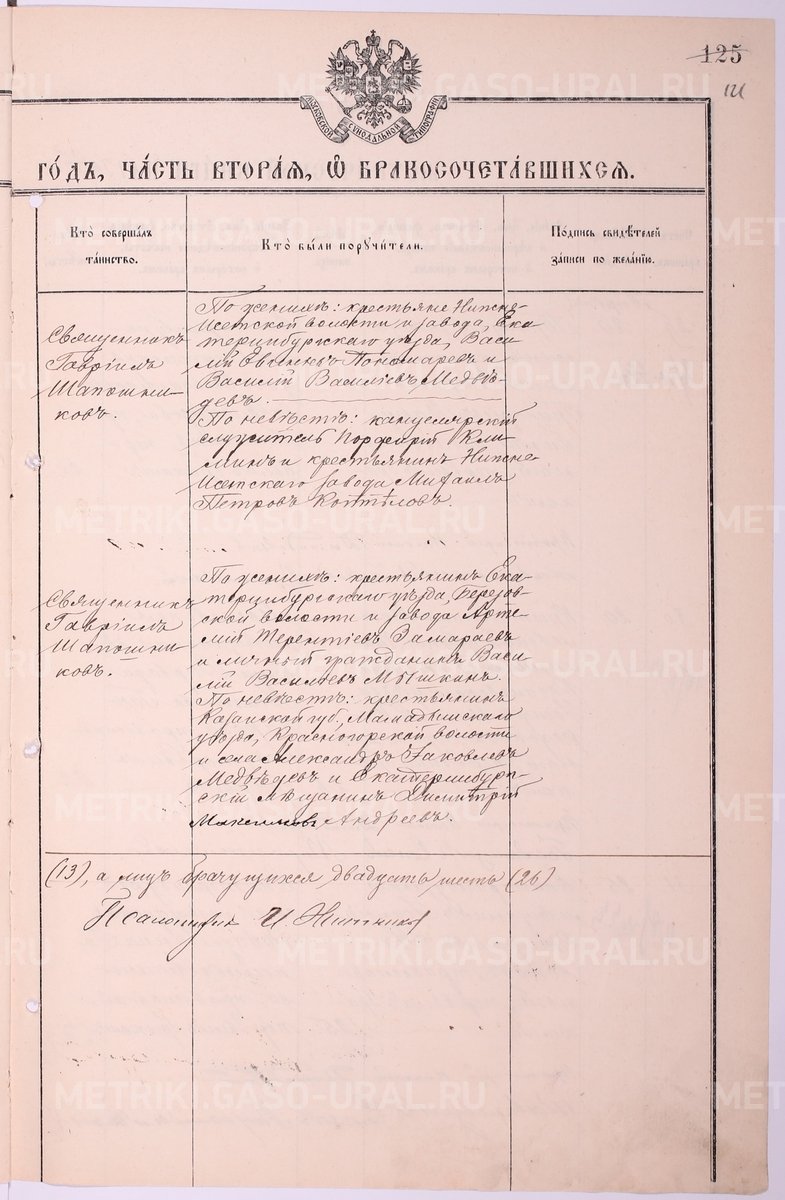 125
121
МОСКОВСКОЙ СѴНОДАЛЬНОЙ ТИПОГРАФІИ
ГОДЪ, ЧАСТЬ ВТОРАЯ, Ѽ БРАКОСОЧЕТАВШИХСЯ.
Кто совершалъ таинство.
Кто были поручители.
Подпись свидѣтелей записи по желанію.
Священникъ
Гавріилъ
Шапошни-
ковъ.
По женихѣ: крестьяне Нижне-
Исетской волости и завода, Ека-
теринбургскаго уѣзда, Васи-
лій Пономаревъ и
Василій Васильевъ Медвѣ-
девъ.
По невѣстѣ: канцелярскій
служитель Порфирій Кли-
минъ и крестьянинъ Нижне-
Исетскаго завода Михаилъ
Петровъ Коптѣловъ.
Священникъ
Гавріилъ
Шапошни-
ковъ.
По женихѣ: крестьянинъ Ека-
теринбургскаго уѣзда, Березов-
ской волости и завода Арте-
мій Терентіевъ Замараевъ
и личный гражданинъ Васи-
лій Васильевъ Мышкинъ.
По невѣстѣ: крестьянинъ
Казанской губ., Мамадышскаго
уѣзда, Красногорской волости
и села Александръ Яковлевъ
Медвѣдевъ и Екатеринбург-
скій мѣщанинъ Димитрій
Максимовъ Андреевъ.
(13), а лицъ брачущихся двадцать шесть (26)
Псаломщикъ И.
METRIKI.GASO-URAL.RU